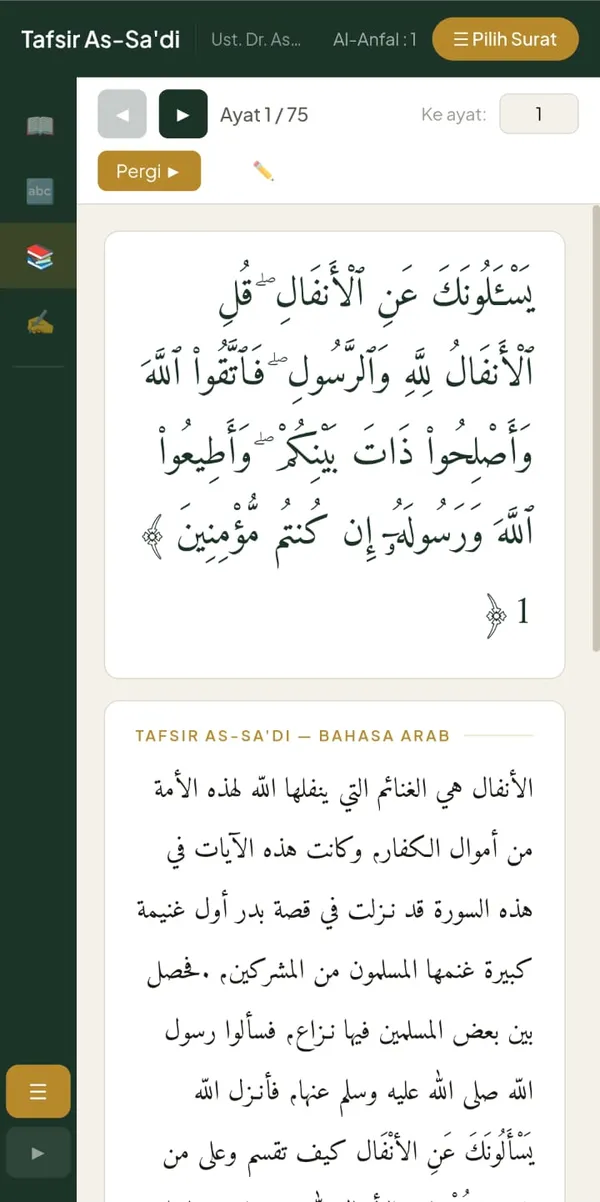 Tafsir As-Sa'di
Ust. Dr. As...
Al-Anfal : 1
☰ Pilih Surat
◄
►
Ayat 1 / 75
Ke ayat:
1
Pergi ►
abc
يَسْـَٔلُونَكَ عَنِ ٱلْأَنفَالِ ۖ قُلِ
ٱلْأَنفَالُ لِلَّهِ وَٱلرَّسُولِ ۖ فَٱتَّقُوا۟ ٱللَّهَ
وَأَصْلِحُوا۟ ذَاتَ بَيْنِكُمْ ۖ وَأَطِيعُوا۟
ٱللَّهَ وَرَسُولَهُۥٓ إِن كُنتُم مُّؤْمِنِينَ ﴿
1 ﴾
TAFSIR AS-SA'DI — BAHASA ARAB
الأنفال هي الغنائم التي ينفلها الله لهذه الأمة
من أموال الكفار، وكانت هذه الآيات في
هذه السورة قد نـزلت في قصة بدر أول غنيمة
كبيرة غنمها المسلمون من المشركين، .فحصل
بين بعض المسلمين فيها نـزاع، فسألوا رسول
الله صلى الله عليه وسلم عنها، فأنـزل الله
يَسْأَلُونَكَ عَنِ الأنْفَال كيف تقسم وعلى من
☰
►